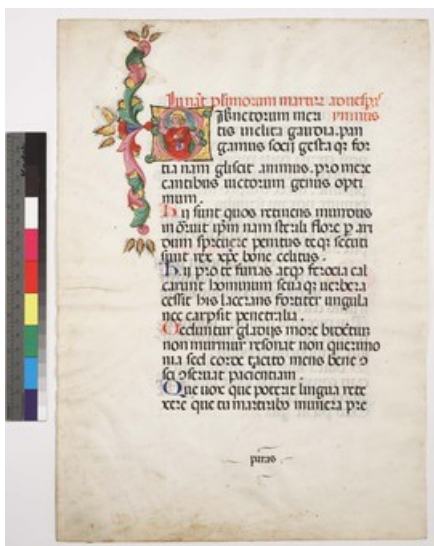 In nat plimorum martir ad vesp
Sanctorum meri ymnus
tis inclita gaudia. pan
gamus socii gesta qz for
tia nam gliscit animus. pro mere
cantibus uictorum genus opti
mum.
Hii sunt quos retinens mundus
inhorruit ipm nam sterili flore p ari
dum spreuere penitus te qz secuti
sunt rex xpe bone celitus.
Hii pro te furias atqz ferocia cal
carunt hominum seuaqz uerbera
cessit his lacerans fortiter ungula
nec carpsit penetralia.
Ceduntur gladijs more bidentum
non murmur resonat non querimo
nia sed corde tacito mens bene ↄ
sci ↄseruat pacientiam.
Que uox que poterit lingua rete
xere que tu martiribus munera pre
paras